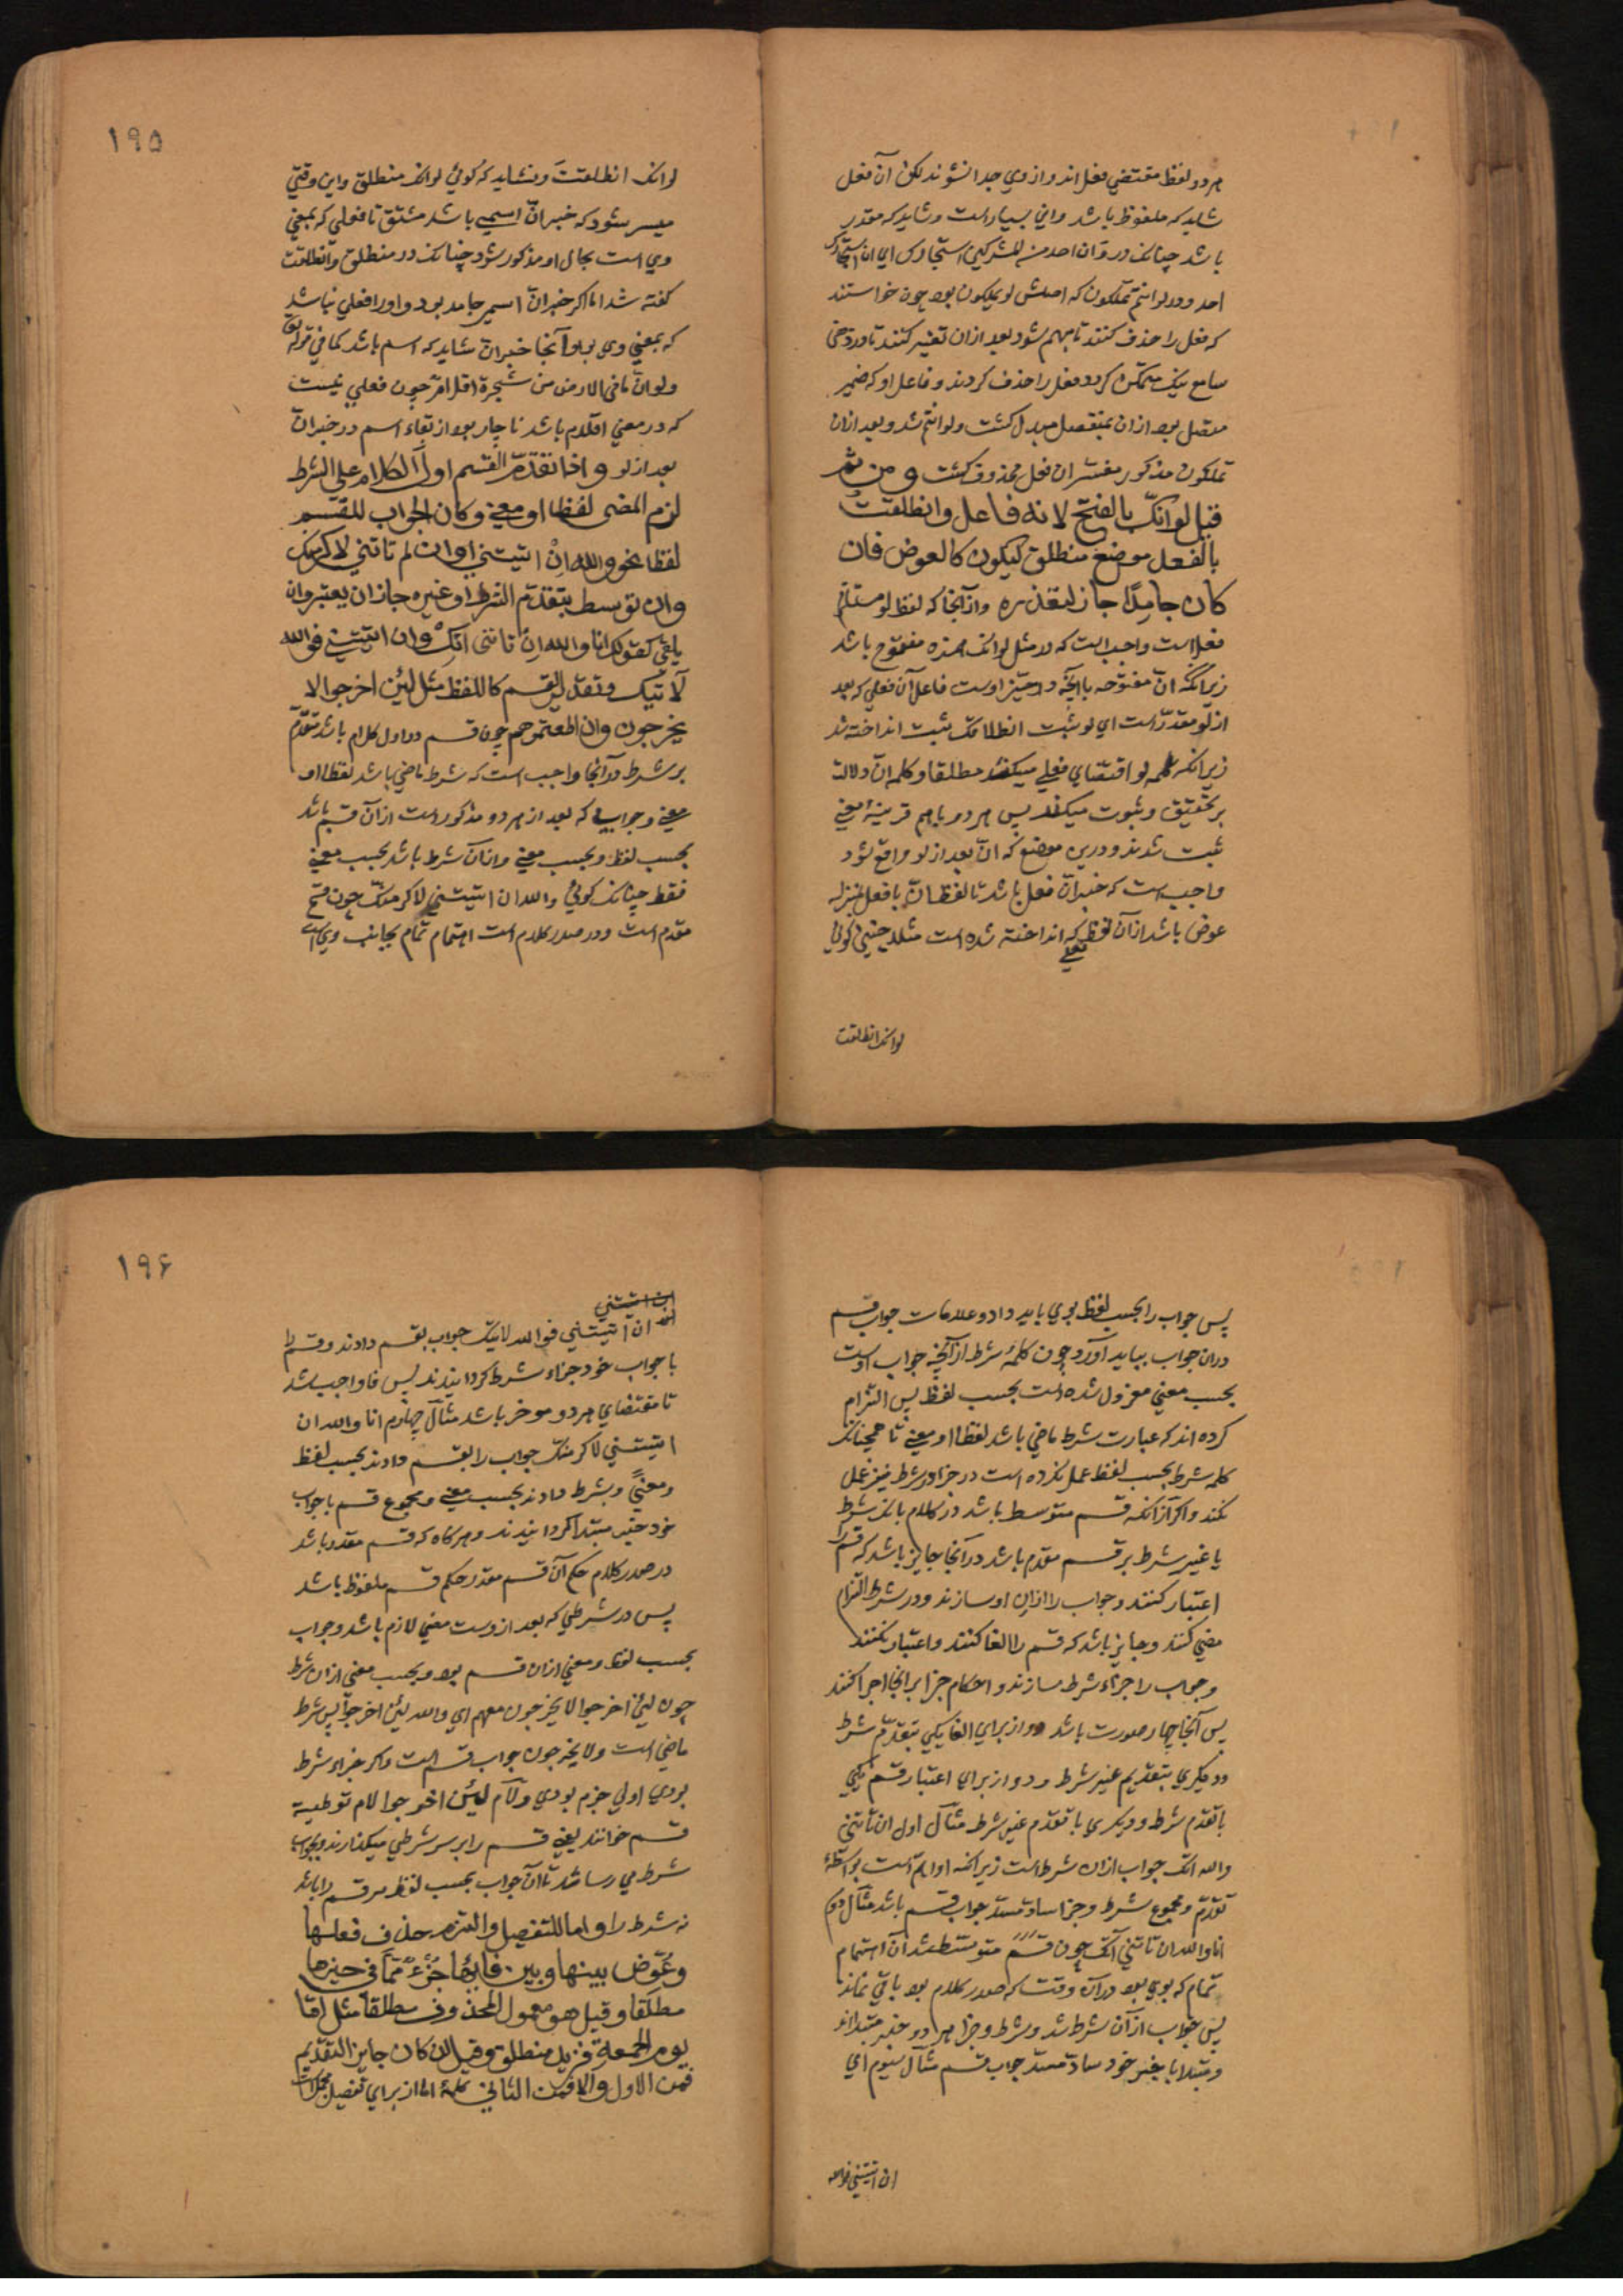 هر دو لفظ مقتضی فعل اند و از وی جدا نشوند لکن آن فعل
شاید که ملفوظ باشد و این بسیارست و شاید که مقدر
باشد چنانکه در و ان احد من المشرکین استجارک ای ان استجارک
احد و در لو انتم تملکون که اصلش لو تملکون بود چون خواستند
که فعل را حذف کنند تا مبهم شود بعد ازان تفسیر کنند تا در ذهن
سامع نیک متمکن کردد فعل را حذف کردند و فاعل او که ضمیر
متصل بود ازان بمنفصل مبدل کشت و لو انتم شد و بعد ازان
تملکون مذکور مفسر ان فعل محذوف کشت و من ثم
قیل لو انک بالفتح لانه فاعل و انطلقت
بالفعل موضع منطلق لیکون کالعوض فان
کان جامدا جاز لتعذره و از آنجا که لفظ لو مستلزم
فعل است واجب است که در مثل لو انک همزه مفتوح باشد
زیرانکه ان مفتوحه با آنچه در حیّز اوست فاعل آن فعلی که بعد
از لو مقدر است ای لو ثبت انطلاقک ثبت انداخته شد
زیرانکه کلمه لو اقتضای فعلی میکند مطلقا و کلمه انّ دلالت
بر تحقیق و ثبوت میکند پس هر دو باهم قرینه معنی
ثبت شدند و درین موضع که انّ بعد از لو واقع شود
واجب است که خبر انّ فعل باشد تا لفظ انّ با فعل بمنزله
عوض باشد از آن لفظ فعلی که انداخته شده است مثلا چنین کوئی
لو انک انطلقت
۱۹۵
لو انک انطلقت و نشاید که کوئی لو انک منطلق و این وقتی
میسر شود که خبر انّ اسمی باشد مشتق تا فعلی که بمعنی
وی است بجای او مذکور شود چنانکه در منطلق و انطلقت
کفته شد اما اکر خبر انّ اسمی جامد بود و او را فعلی نباشد
که بمعنی وی بود آنجا خبر انّ شاید که اسم باشد کما فی قوله تعالی
و لو انّ ما فی الارض من شجرة اقلام چون فعلی نیست
که در معنی اقلام باشد ناچار بود از بقاء اسم در خبر انّ
بعد از لو و اذا تقدّم القسم اول الکلام علی الشرط
لزم المضی لفظا او معنی و کان الجواب للقسم
لفظا نحو والله ان اتیتنی او ان لم تاتنی لاکرمتک
و ان توسط بتقدم الشرط او غیره جاز ان یعتبر و ان
یلغی کقولک انا والله ان تاتنی آتک و ان اتیتنی فوالله
لآتینک و تقدیر القسم کاللفظ مثل لئن اخرجوا لا
یخرجون و ان اطعتموهم چون قسم در اول کلام باشد متقدم
بر شرط در آنجا واجب است که شرط ماضی باشد لفظا او
معنی و جوابی که بعد از هر دو مذکور است از آن قسم باشد
بحسب لفظ و بحسب معنی و از آن شرط باشد بحسب معنی
فقط چنانکه کوئی والله ان اتیتنی لاکرمتک چون قسم
مقدم است و در صدر کلام است اهتمام تمام بجانب وی است
پس جواب را بحسب لفظ بوی باید داد و علامات جواب قسم
دران جواب بباید آورد چون کلمه شرط از آنچه جواب اوست
بحسب معنی معزول شده است بحسب لفظ پس التزام
کرده اند که عبارت شرط ماضی باشد لفظا او معنی تا همچنانکه
کلمه شرط بحسب لفظ عمل نکرده است در جزا در شرط نیز عمل
نکند و اکر آنکه قسم متوسط باشد در کلام بانکه شرط
یا غیر شرط بر قسم مقدم باشد در آنجا جایز باشد که قسم را
اعتبار کنند و جواب را ازان او سازند و در شرط التزام
مضی کنند و جایز باشد که قسم را الغا کنند و اعتبار نکنند
و جواب را جزاء شرط سازند و احکام جزا بر آنجا اجرا کنند
پس آنجا چهار صورت باشد دو از برای الغا یکی بتقدّم شرط
و دیکری بتقدیم غیر شرط و دو از برای اعتبار قسم یکی
با تقدم شرط و دیکری با تقدم غیر شرط مثال اول ان تاتنی
والله آتک جواب ازان شرط است زیرانکه او اهم است بواسطه
تقدم و مجموع شرط و جزا سادّ مسدّ جواب قسم باشد مثال دوم
انا والله ان تاتنی آتک چون قسم متوسط شد آن اهتمام
تمام که بوی بود در آن وقت که صدر کلام بود باقی نماند
پس جواب از آن شرط شد و شرط و جزا هر دو خبر مبتدااند
و مبتدا با خبر خود سادّ مسدّ جواب قسم مثال سیوم ای
ان اتیتنی فوالله
۱۹۶
ان اتیتنی فوالله لآتینک جواب بقسم دادند و قسم را
با جواب خود جزاء شرط کردانیدند پس فا واجب شد
تا مقتضای هر دو موخر باشد مثال چهارم انا والله ان
اتیتنی لاکرمتک جواب را بقسم دادند بحسب لفظ
و معنی و بشرط دادند بحسب معنی و مجموع قسم با جواب
خود خبر مبتدا کردانیدند و هرکاه که قسم مقدر باشد
در صدر کلام حکم آن قسم مقدر حکم قسم ملفوظ باشد
پس در شرطی که بعد از وست مضی لازم باشد و جواب
بحسب لفظ و معنی ازان قسم بود و بحسب معنی ازان شرط
چون لئن اخرجوا لا یخرجون معهم ای والله لئن اخرجوا پس شرط
ماضی است و لا یخرجون جواب قسم است و اکر جزاء شرط
بودی اولی جزم بودی و لام لئن اخرجوا لام توطیه
قسم خوانند یعنی قسم را بر سر شرطی میکذارند و بجواب
شرط می رساند تا آن جواب بحسب لفظ مر قسم را باشد
نه شرط را و اما للتفصیل و التزم حذف فعلها
و عوّض بینها و بین فایها جزء ممّا فی حیزها
مطلقا و قیل هو معمول المحذوف مطلقا مثل امّا
یوم الجمعة فزید منطلق و قیل ان کان جایز التقدیم
فمن الاول و الا فمن الثانی کلمه اما از برای تفصیل مجمل است